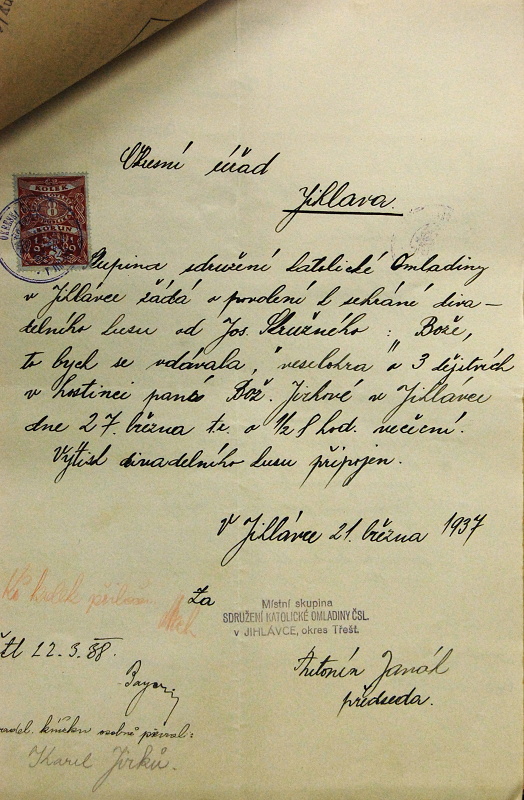 Okresní úřad
Jihlava.
KOLEK
8
KORUN
Skupina sdružení katolické Omladiny
v Jihlávce žádá o povolení k sehráné diva-
delního kusu od Jos. Stružného: „Bože,
to bych se vdávala," veselohra o 3 dějstvích
v hostinci paní Bož. Jirkové v Jihlávce
dne 27. března t.r. o ½ 8 hod. večerní.
Výtisk divadelního kusu připojen.
V Jihlávce 21. března 1937
Kč kolek
Za
Místní skupina
SDRUŽENÍ KATOLICKÉ OMLADINY ČSL.
v JIHLÁVCE, okres Třešť.
22.3.
Antonín Janák
předseda.
knížku osobně převzal:
Karel Jirků.